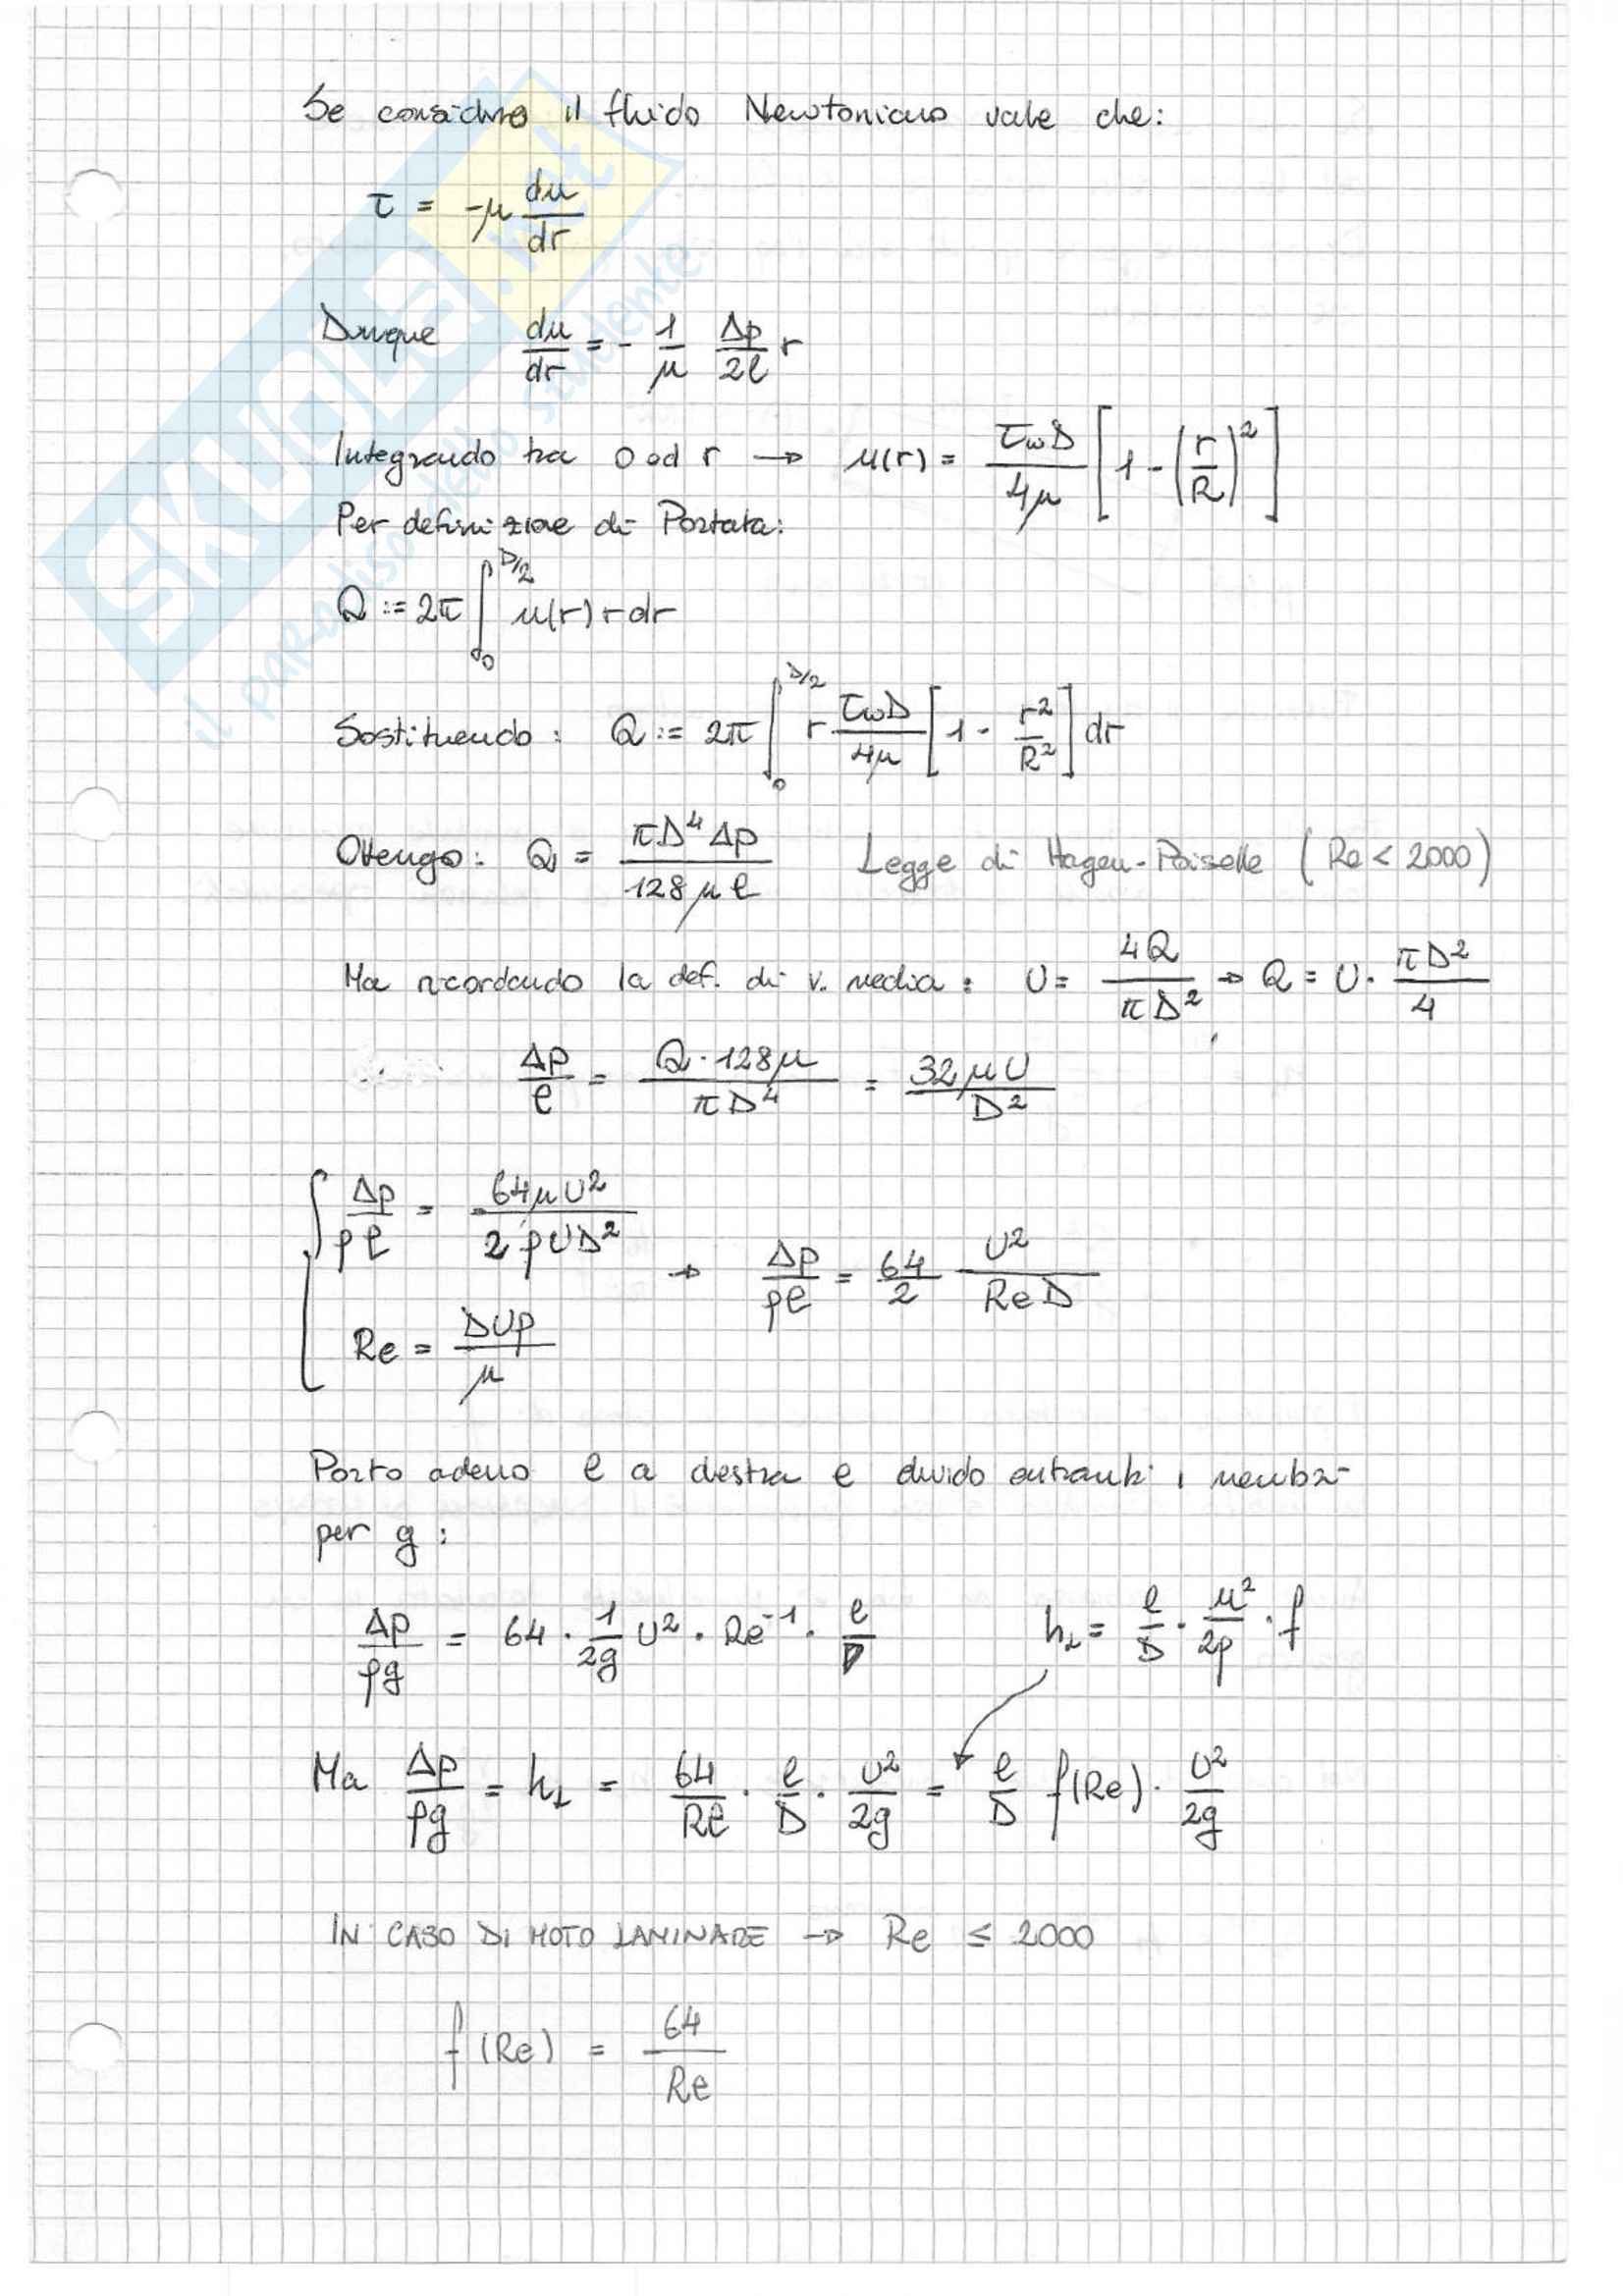 Se considero il fluido Newtoniano vale che:
τ = -μ du/dr
Dunque du/dr = - 1/μ Δp/2ℓ r
Integrando tra 0 ad r → u(r) = τwD/4μ [1 - (r/R)²]
Per definizione di Portata:
Q := 2π ∫₀^{D/2} u(r) r dr
Sostituendo: Q := 2π ∫₀^{D/2} r τwD/4μ [1 - r²/R²] dr
Ottengo: Q = πD⁴Δp/128μℓ Legge di Hagen-Poiselle (Re < 2000)
Ma ricordando la def. di v. media: U = 4Q/πD² → Q = U · πD²/4
Δp/ℓ = Q·128μ/πD⁴ = 32μU/D²
{ Δp/ρℓ = 64μU²/2ρUD² → Δp/ρℓ = 64/2 U²/Re D
Re = DUρ/μ
Porto adesso ℓ a destra e divido entrambi i membri
per g:
Δp/ρg = 64 · 1/2g U² · Re⁻¹ · ℓ/D h_L = ℓ/D · u²/2g · f
Ma Δp/ρg = h_L = 64/Re · ℓ/D · U²/2g = ℓ/D f(Re) · U²/2g
IN CASO DI MOTO LAMINARE → Re ≤ 2000
f(Re) = 64/Re
SKUOLA.net
il paradiso dello studente